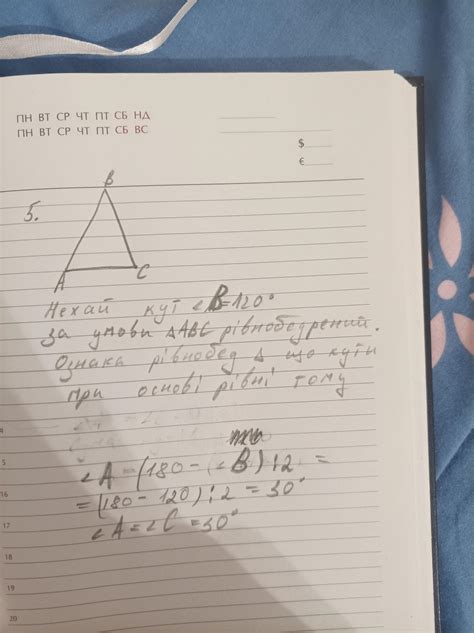 ПН ВТ СР ЧТ ПТ СБ НД
ПН ВТ СР ЧТ ПТ СБ ВС
$
€
5.
B
A
C
Нехай кут ∠B=120°
за умови △ABC рівнобедрений.
Ознака рівнобед △ що кути
при основі рівні тому
∠A = (180 - (∠B) : 2 =
= (180 - 120) : 2 = 30°
∠A = ∠C = 30°
15
16
17
18
19
20